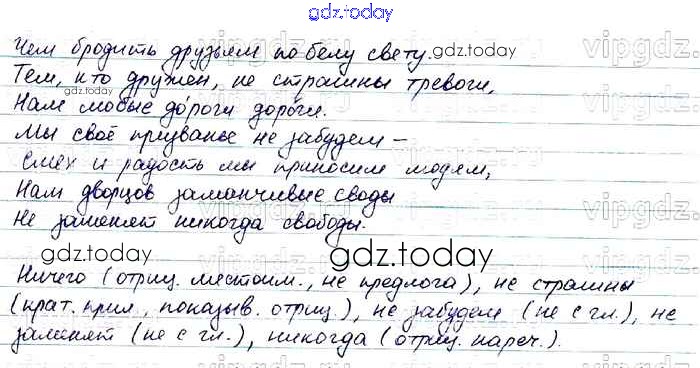 gdz.today
Чем бродить друзьям по белу свету. gdz.today
Тем, кто дружен, не страшны тревоги,
gdz.today
Нам любые до́роги доро́ги.
Мы своё призванье не забудем –
Смех и радость мы приносим людям,
Нам дворцов заманчивые своды
Не заменят никогда свободы.
gdz.today gdz.today
Ничего (отриц. местоим., не предлога), не страшны
(крат. прил., показыв. отриц.), не забудем (не с гл.), не
заменят (не с гл.), никогда (отриц. нареч.).